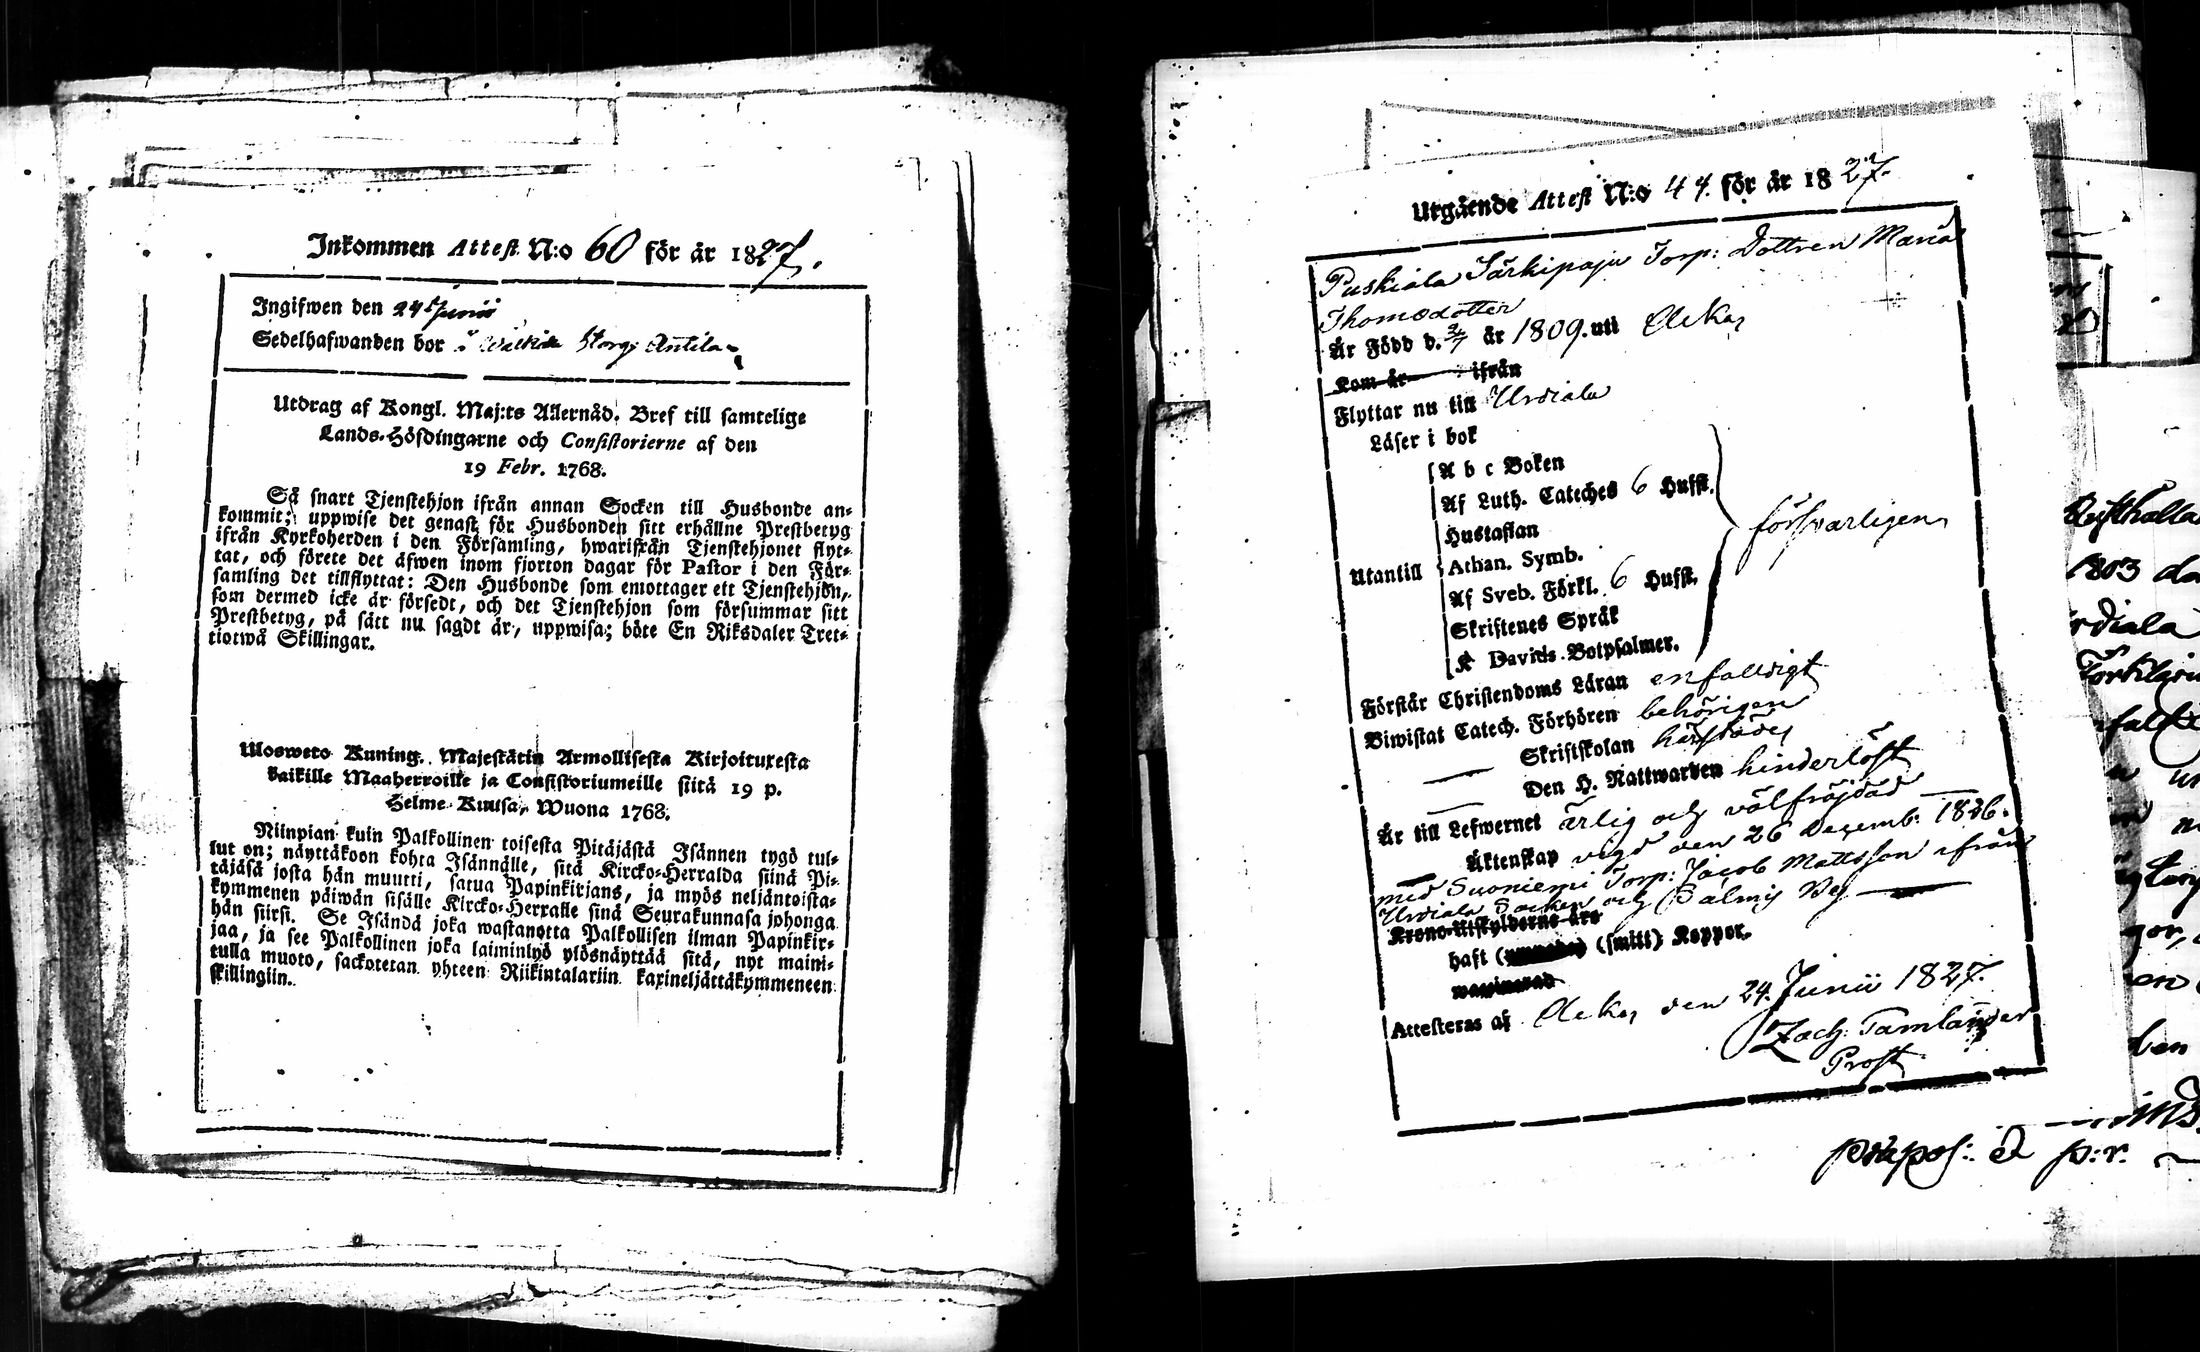 Inkommen Attest N:o 60 för år 1827.
Ingifwen den 24 Junii
Sedelhafwanden bor i Storg: Antila
Utdrag af Kongl. Maj:ts Allernåd. Bref till samtelige
Lands-Höfdingarne och Consistorierne af den
19 Febr. 1768.
Så snart Tjenstehjon ifrån annan Socken till Husbonde an-
kommit; uppwise det genast för Husbonden sitt erhållne Prestbetyg
ifrån Kyrkoherden i den Församling, hwarifrån Tjenstehjonet flyt-
tat, och förete det äfwen inom fjorton dagar för Pastor i den För-
samling det tillflyttat: Den Husbonde som emottager ett Tjenstehjon,
som dermed icke är försedt, och det Tjenstehjon som försummar sitt
Prestbetyg, på sätt nu sagdt är, uppwisa; böte En Riksdaler Tret-
tiotwå Skillingar.
Ulosweto Kuning. Majestätin Armollisesta Kirjoituxesta
kaikille Maaherroille ja Consistoriumeille siitä 19 p.
Helme-Kuusa, Wuona 1768.
Niinpian kuin Palkollinen toisesta Pitäjästä Isännen tygö tul-
lut on; näyttäkoon kohta Isännälle, sitä Kircko-Herralda siinä Pi-
täjäsä josta hän muutti, saatua Papinkirjans, ja myös neljäntoista-
kymmenen päiwän sisälle Kircko-Herralle siinä Seurakunnasa johonga
hän siirsi. Se Isändä joka wastanotta Palkollisen ilman Papinkir-
jaa, ja see Palkollinen joka laiminlyö ylösnäyttää sitä, nyt maini-
tulla muoto, sackotetan yhteen Riikintalariin kaxineljättäkymmeneen
skillingiin.
Utgående Attest N:o 44. för år 1827.
Puskiala Särkipaju Torp: Dottren Maria
Thomsdotter
Är Född d. 3/7 år 1809. uti Akas
Kom år ifrån
Flyttar nu till Urdiala
Läser i bok
A b c Boken
Af Luth. Cateches 6 Hufst.
Hustaflan
Athan. Symb.
Utantill
Af Sveb. Förkl. 6 Hufst.
Skriftenes Språk
K Davids Botpsalmer.
försvarligen
Förstår Christendoms Läran enfalldigt
Biwistat Catech. Förhören behörigen
Skriftskolan härstädes
Den H. Nattwarden hinderlöst
Är till Lefwernet ärlig och välfräjdad
Äktenskap vigd den 26 Decemb. 1826.
med Suoniemi Torp: Jacob Mattsson ifrån
Urdiala Socken och Balmis By
Krono-Utskylderne års
haft (smitt) Koppor.
Attesteras af Akas den 24. Junii 1827.
Zach: Tamlander
Prost
1803
præpos: & p:r.